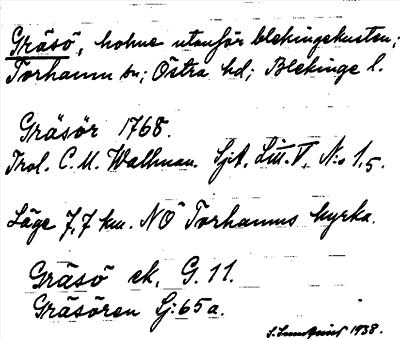 Gräsö, holme utanför blekingekusten;
Torhamn sn; Östra hd; Blekinge l.
Gräsör 1768.
Trol. C. U. Wallman. Sjk. Litt. V, N:o 1,5.
Läge 7,7 km. NO Torhamns kyrka.
Gräsö ek. G. 11.
Gräsören Sj: 65 a.
1938.